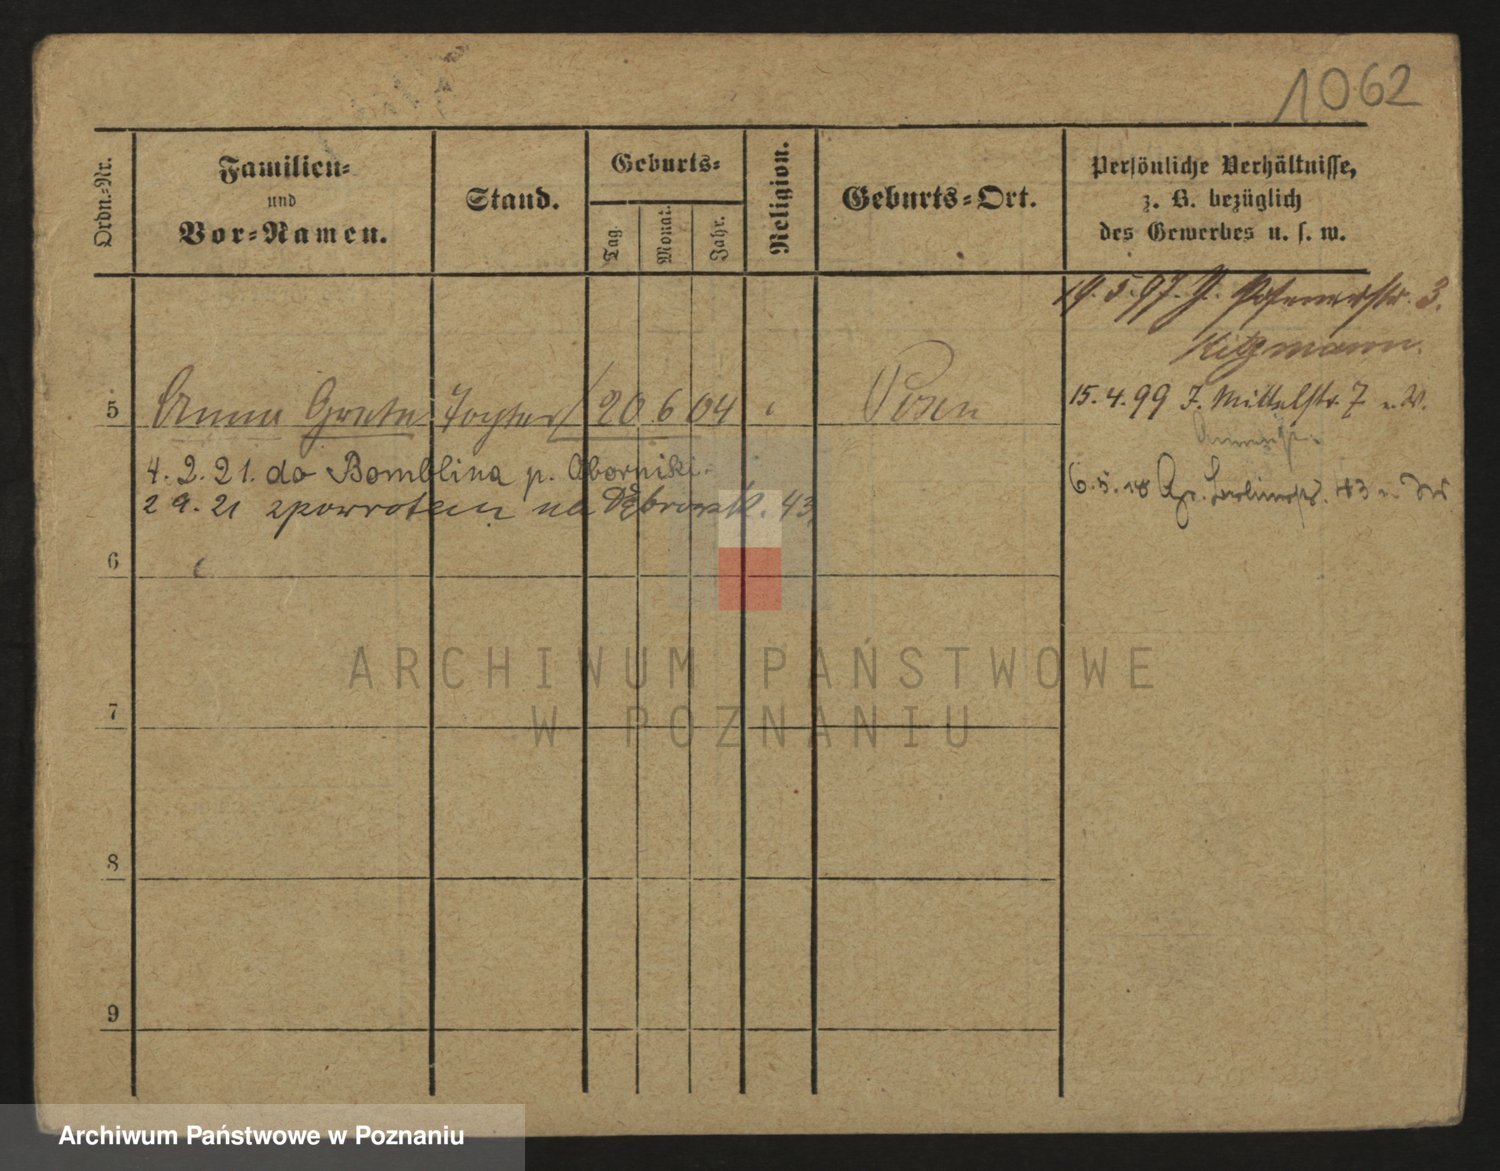 1062
Ordn.-Nr.
Familien-
und
Vor-Namen.
Stand.
Geburts-
Tag.
Monat.
Jahr.
Religion.
Geburts-Ort.
Persönliche Verhältnisse,
z. B. bezüglich
des Gewerbes u. s. w.
19. 5. 97. J. Posenerstr. 3.
Kitzmann.
5 Anna Greta Tochter 20 6 04 Posen
15. 4. 99 J. Mittelstr. 7
4. 2. 21. do Bomblina p. Oborniki.
2 9. 21 zpowrotem na Dąbrowsk. 43,
6
7
8
9
ARCHIWUM PAŃSTWOWE
W POZNANIU
Archiwum Państwowe w Poznaniu